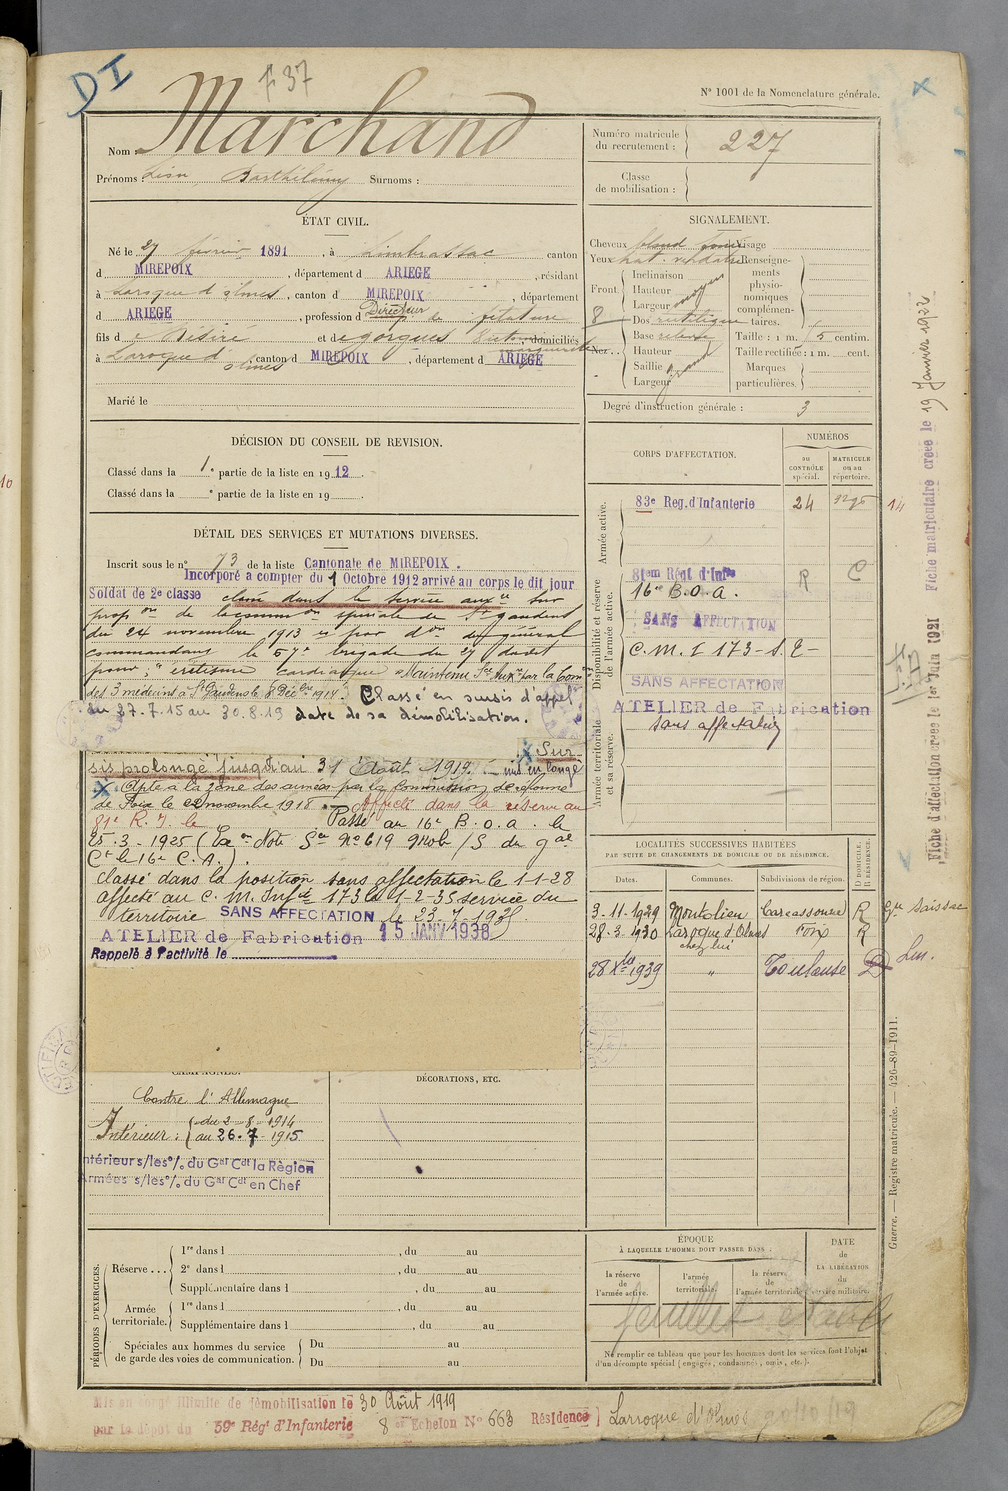 DI
F 37
N° 1001 de la Nomenclature générale.
Nom : Marchand
Prénoms : Léon Barthélemy Surnoms :
Numéro matricule du recrutement : 227
Classe de mobilisation :
ÉTAT CIVIL.
Né le 27 février 1891, à Limbrassac canton
d MIREPOIX, département d ARIEGE, résidant
à Laroque d'olmes, canton d MIREPOIX, département
d ARIEGE, profession d Directeur de filature
fils d e Désiré et de gorgues domiciliés
à Laroque d'olmes, canton d MIREPOIX, département d ARIEGE
Marié le
SIGNALEMENT.
Cheveux blond Visage
Yeux Renseignements physionomiques complémentaires.
Front. Inclinaison
Hauteur moyen
Largeur
Nez... Dos rectiligne
Base
Hauteur
Saillie grand
Largeur
Taille : 1 m. 5 centim.
Taille rectifiée : 1 m. cent.
Marques particulières.
Degré d'instruction générale : 3
DÉCISION DU CONSEIL DE REVISION.
Classé dans la 1e partie de la liste en 1912.
Classé dans la e partie de la liste en 19
CORPS D'AFFECTATION.
NUMÉROS
au CONTRÔLE spécial.
MATRICULE ou au répertoire.
Armée active.
83e Reg. d'Infanterie 24
14
Disponibilité et réserve de l'armée active.
81em Régt d'Infie R C
16e B.O.A.
SANS AFFECTATION
C.M.I 173 - S.E -
SANS AFFECTATION
Armée territoriale et sa réserve.
ATELIER de Fabrication
sans affectation
DÉTAIL DES SERVICES ET MUTATIONS DIVERSES.
Inscrit sous le n° 73 de la liste Cantonale de MIREPOIX.
Incorporé à compter du 1 Octobre 1912 arrivé au corps le dit jour
Soldat de 2e classe classé dans le service auxre sur
propon de la common spéciale de St gaudens
du 24 novembre 1913 et par don du général
commandant la 57e brigade du 27 du dit
pour : "éréthisme cardiaque" Maintenu Sce Auxre par la Com
des 3 médecins à St Gaudens le 8 Décbre 1914. Classé en sursis d'appel
du 27.7.15 au 30.8.19 date de sa démobilisation.
Sur-
sis prolongé jusqu'au 31 Août 1919. mis en congé
Apte à la zône des armées par la Commission de réforme
de Foix le 22 novembre 1918. Affecté dans la réserve au
81e R.I. le Passé au 16e B.O.A. le
25.3.1925 (Ex on Note Sce N° 619 Mob/S du gal
Ct le 16e C.A.).
Classé dans la position sans affectation le 1-1-28
affecté au C.M. Infie 173 le 1-2-35 service du
territoire SANS AFFECTATION le 23.7.1935
ATELIER de Fabrication 15 JANV 1938
Rappelé à l'activité le
LOCALITÉS SUCCESSIVES HABITÉES
PAR SUITE DE CHANGEMENTS DE DOMICILE OU DE RÉSIDENCE.
Dates. Communes. Subdivisions de région. D DOMICILE. R RÉSIDENCE.
3-11-1929 Montolieu Carcassonne R Saissac
28-3-1930 Laroque d'Olmes chez lui Foix R
28 Xbre 1939 " Toulouse D
CAMPAGNES.
Contre l'Allemagne
Intérieur : du 2-8-1914
au 26-7-1915
Intérieur s/les °/° du Gal Cdt la Région
Armées s/les °/° du Gal Cdt en Chef
DÉCORATIONS, ETC.
PÉRIODES D'EXERCICES.
Réserve... 1re dans l , du au
2e dans l , du au
Supplémentaire dans l , du au
Armée territoriale. 1re dans l , du au
Supplémentaire dans l , du au
Spéciales aux hommes du service de garde des voies de communication. Du au
Du au
ÉPOQUE
À LAQUELLE L'HOMME DOIT PASSER DANS :
la réserve de l'armée active.
l'armée territoriale.
la réserve de l'armée territoriale.
DATE de LA LIBÉRATION du service militaire.
feuillet établi
Ne remplir ce tableau que pour les hommes dont les services font l'objet
d'un décompte spécial (engagés, condamnés, omis, etc.).
Mis en congé illimité de démobilisation le 30 Août 1919
par le dépôt du 59e Régt d'Infanterie 8e Echelon N° 663 Résidence) Larroque d'Olmes
Fiche d'affectation créée le 1er Juin 1921 Fiche matriculaire créée le 19 Janvier 1922
Guerre. — Registre matricule. — 426-89-1911.